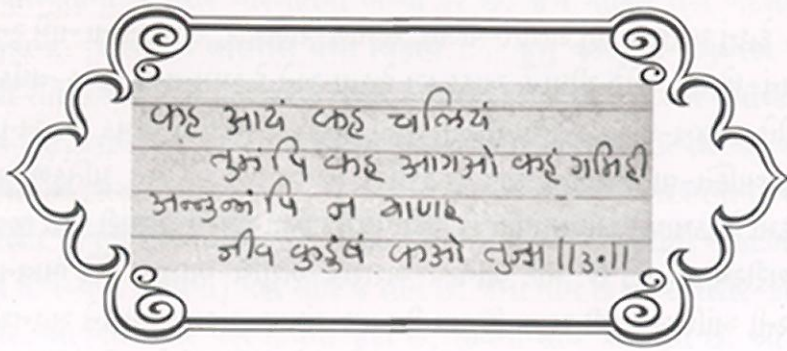 कह आयं कह चलियं
तुमं पि कह आगओ कहं गमिही
अन्नुन्नं पि न याणह
जीव कुडुंबं कओ तुज्झ ॥३०॥